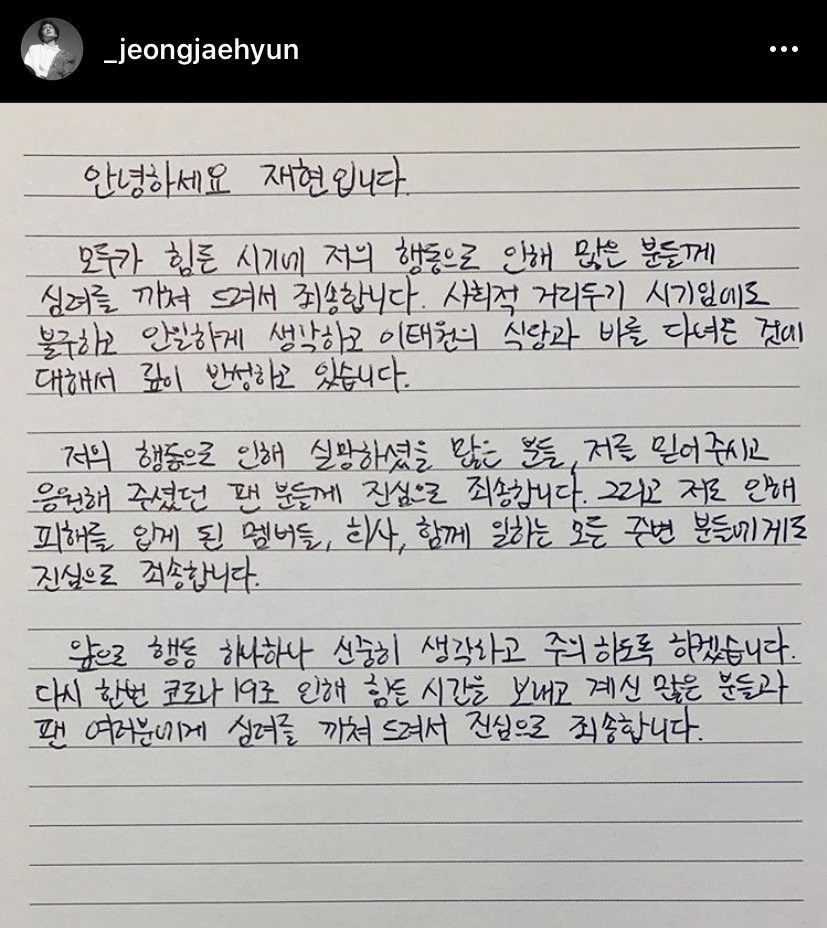 _jeongjaehyun
안녕하세요 재현입니다.
모두가 힘든 시기에 저의 행동으로 인해 많은 분들께
심려를 끼쳐 드려서 죄송합니다. 사회적 거리두기 시기임에도
불구하고 안일하게 생각하고 이태원의 식당과 바를 다녀온 것에
대해서 깊이 반성하고 있습니다.
저의 행동으로 인해 실망하셨을 많은 분들, 저를 믿어주시고
응원해 주셨던 팬 분들께 진심으로 죄송합니다. 그리고 저로 인해
피해를 입게 된 멤버들, 회사, 함께 일하는 모든 주변 분들에게도
진심으로 죄송합니다.
앞으로 행동 하나하나 신중히 생각하고 주의 하도록 하겠습니다.
다시 한번 코로나 19로 인해 힘든 시간을 보내고 계신 많은 분들과
팬 여러분에게 심려를 끼쳐 드려서 진심으로 죄송합니다.